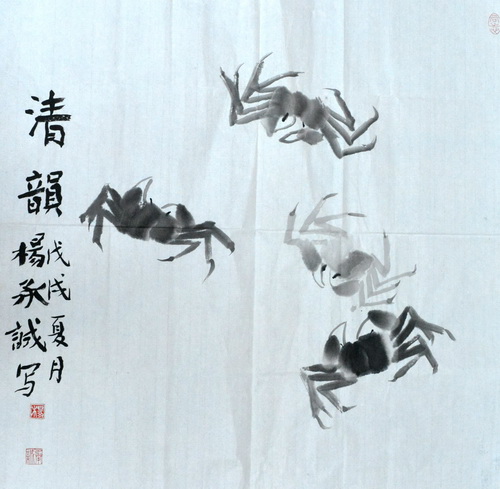 清韻
戊戌夏月
楊承誠写